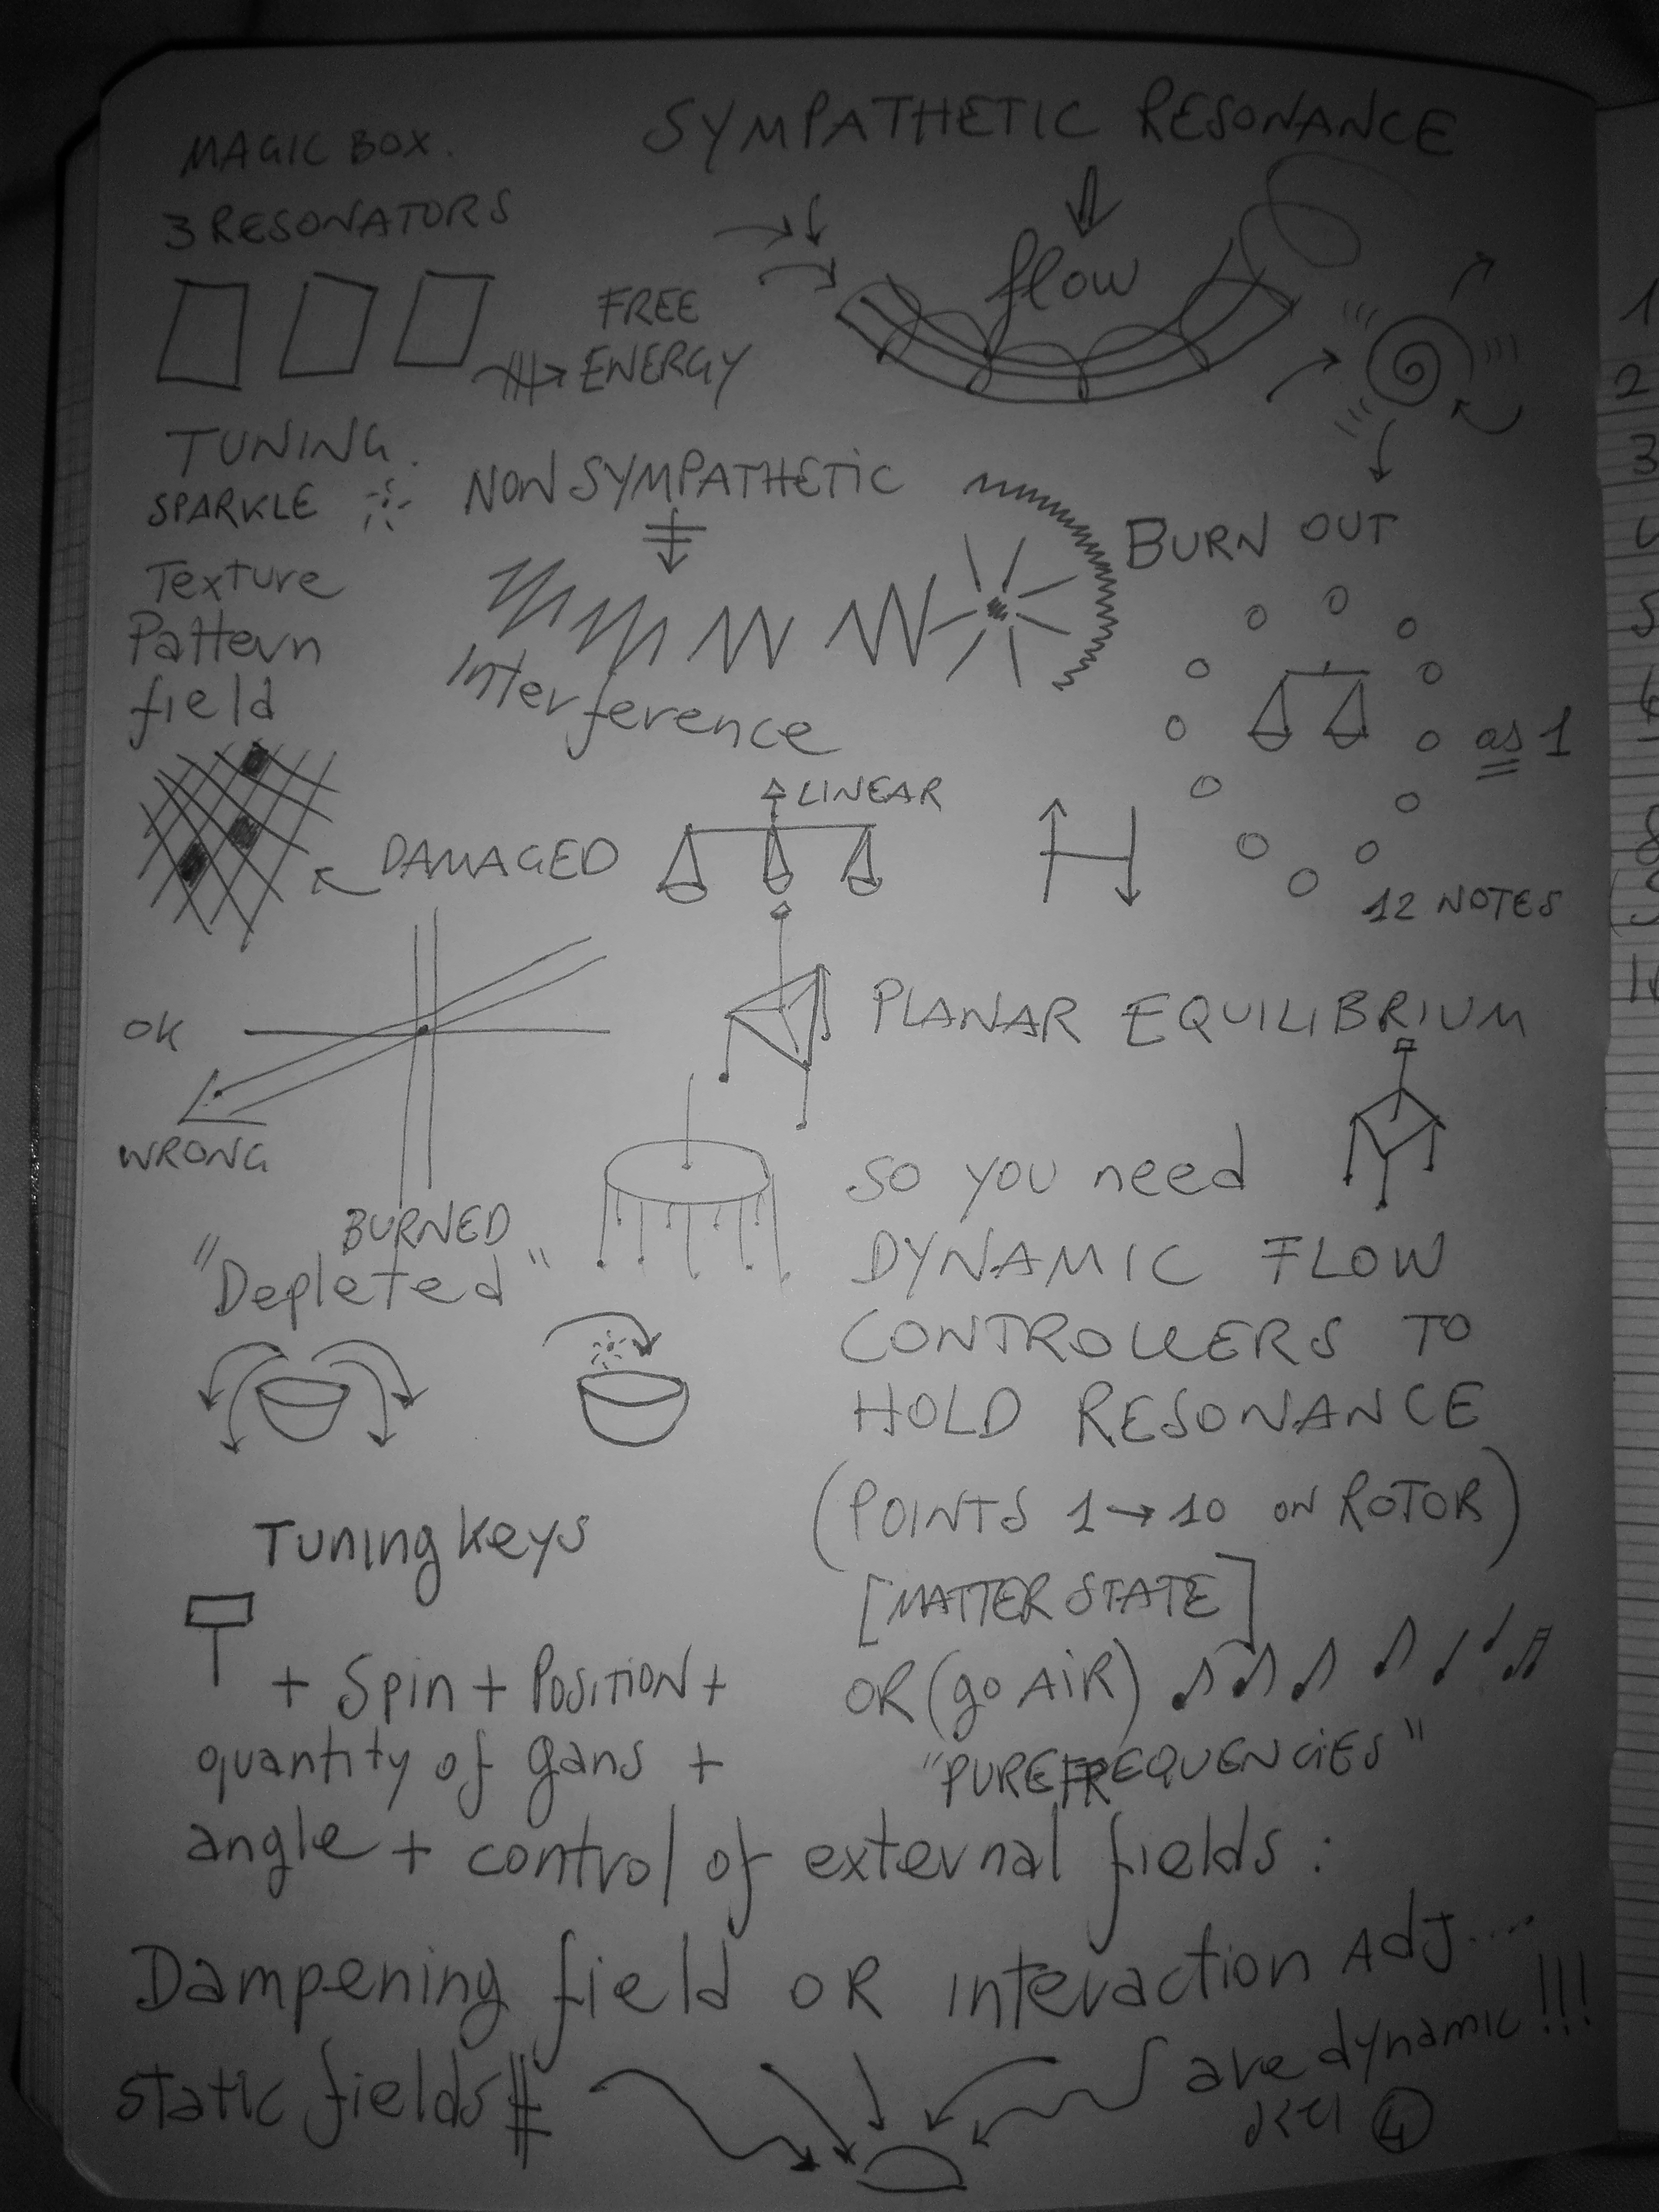 MAGIC BOX.
SYMPATHETIC RESONANCE
3 RESONATORS
flow
FREE
ENERGY
TUNING.
SPARKLE
NON SYMPATHETIC
BURN OUT
Texture
Pattern
field
Interference
as 1
LINEAR
DAMAGED
12 NOTES
OK
PLANAR EQUILIBRIUM
WRONG
BURNED
"Depleted"
so you need
DYNAMIC FLOW
CONTROLLERS TO
HOLD RESONANCE
(POINTS 1→10 ON ROTOR)
[MATTER STATE]
OR (go AiR)
"PURE FREQUENCiES"
Tuning keys
+ Spin + POSITION +
quantity of gans +
angle + control of external fields :
Dampening field OR interaction ADJ....
static fields
are dynamic !!!
4
1
2
3
5
8
9